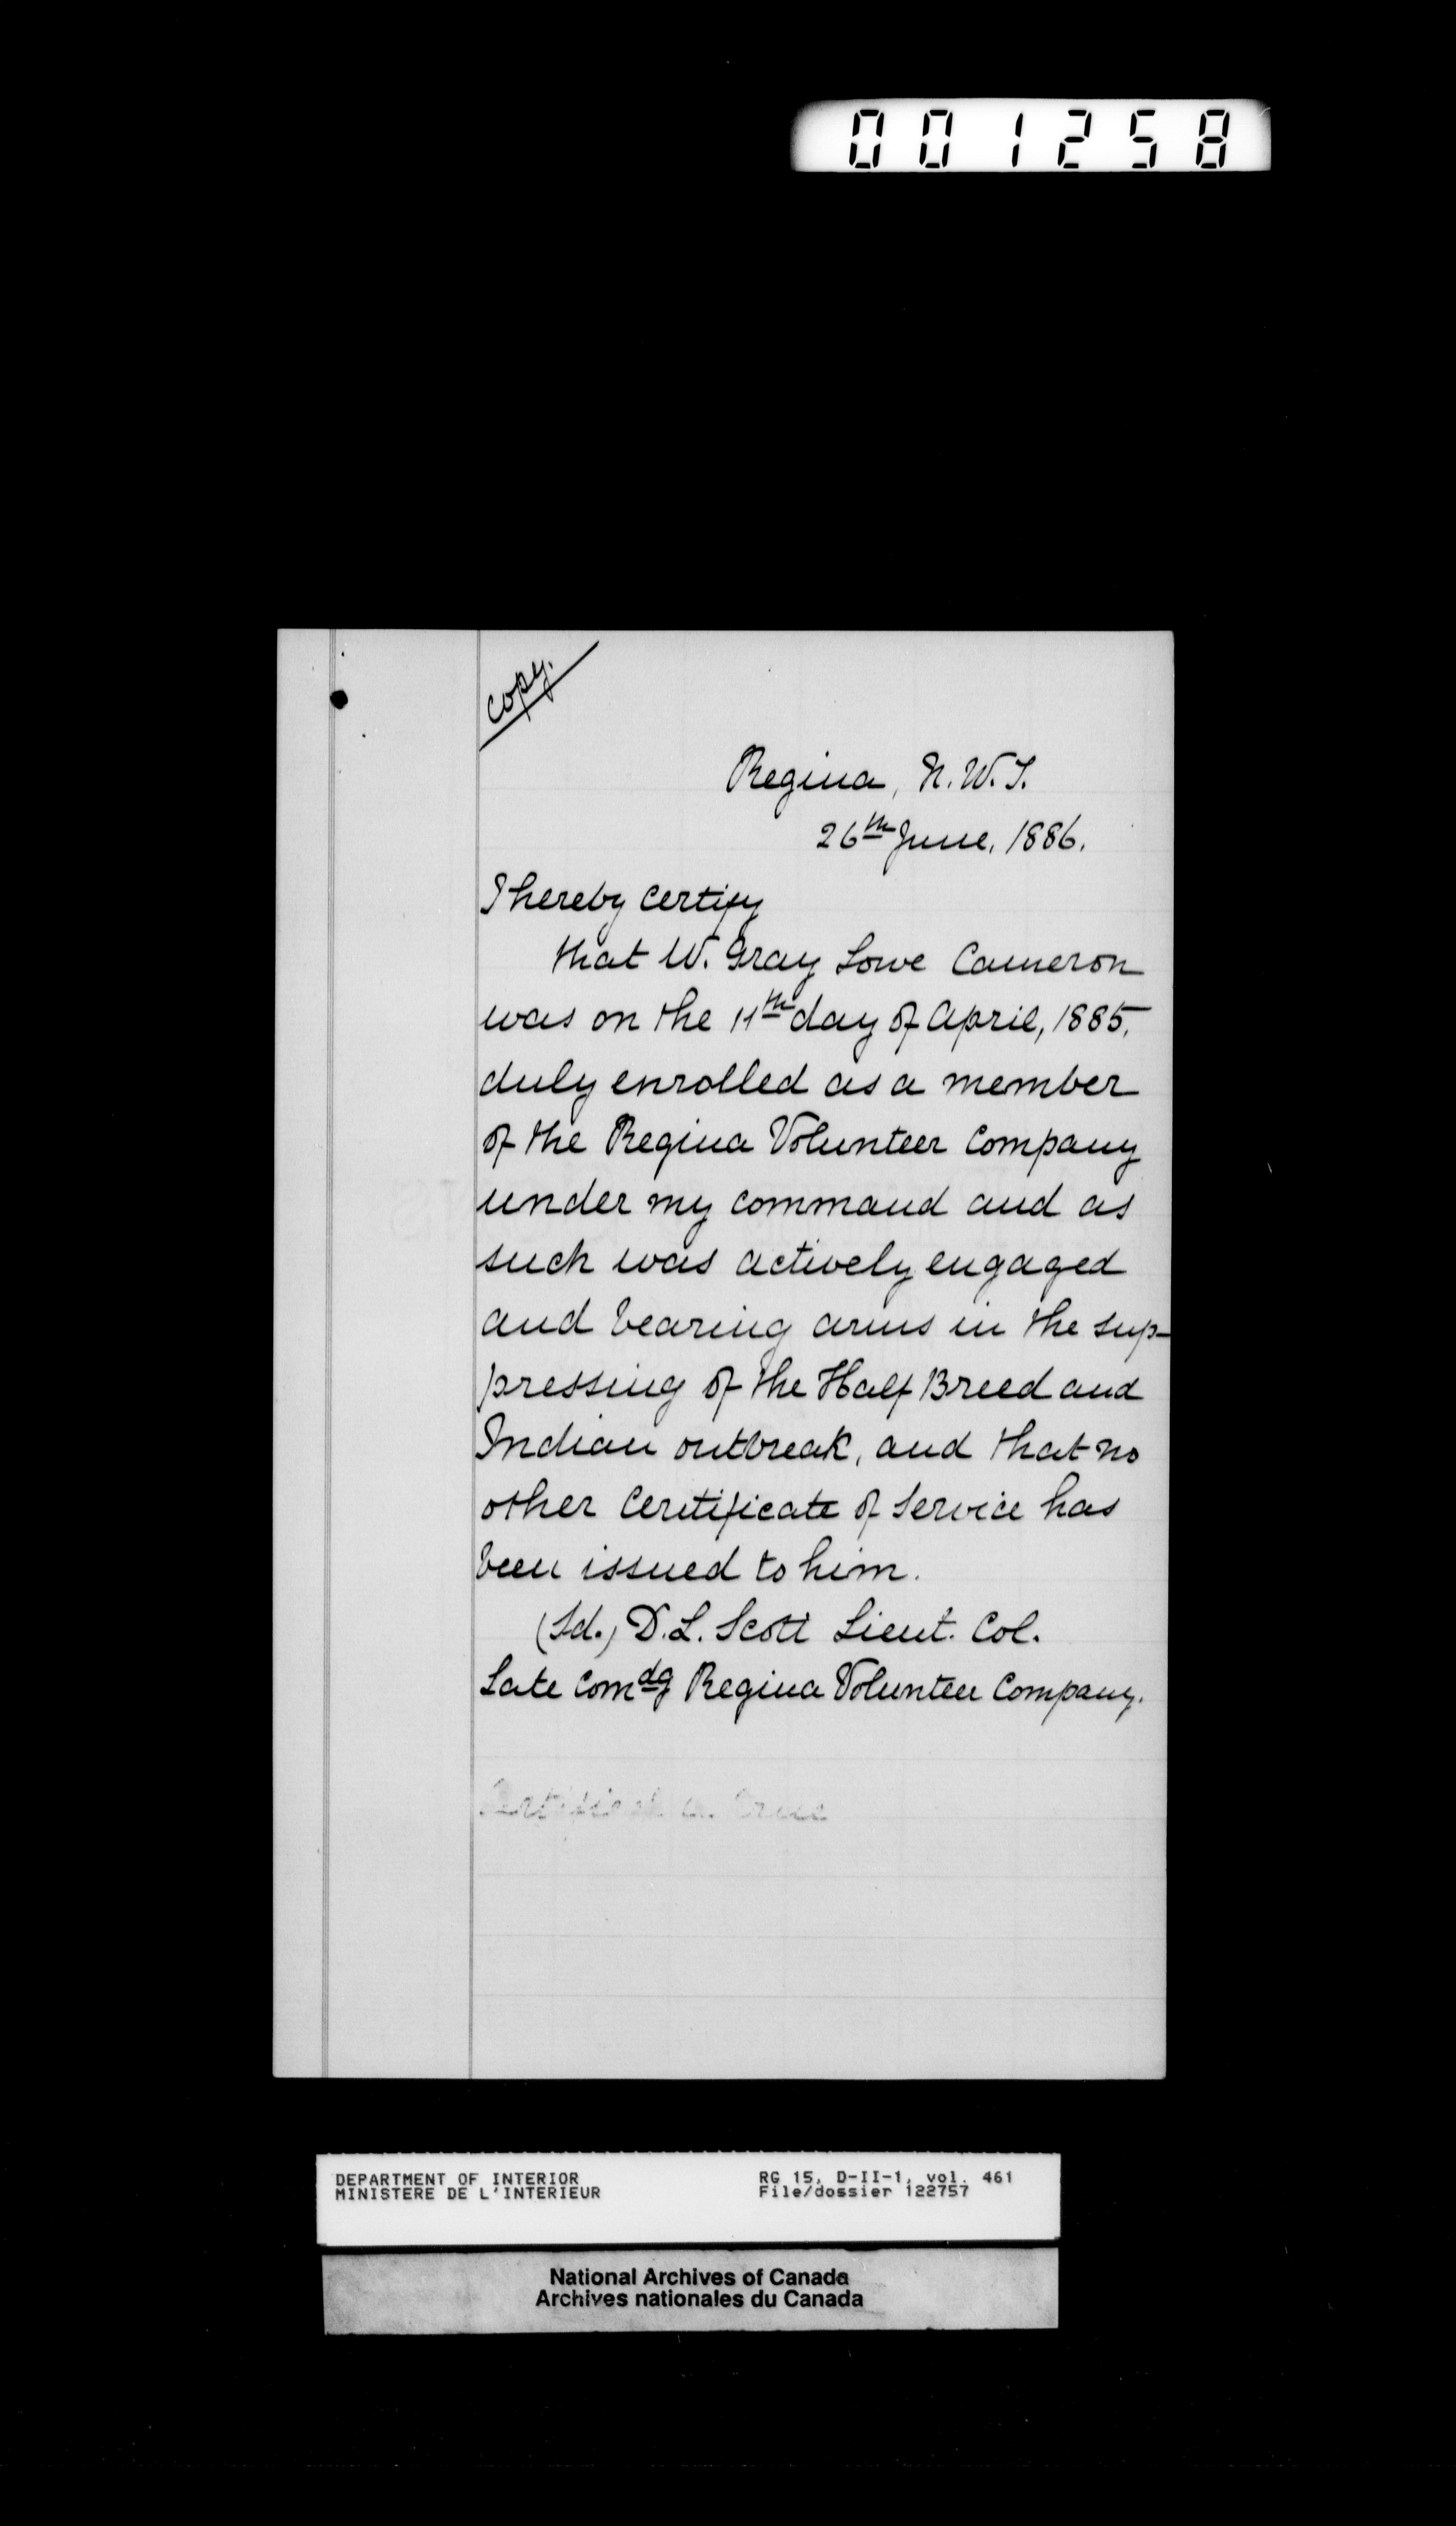 001258
Copy.
Regina, N.W.T.
26th June, 1886.
I hereby certify
that W. Gray Lowe Cameron
was on the 11th day of April, 1885,
duly enrolled as a member
of the Regina Volunteer Company
under my command and as
such was actively engaged
and bearing arms in the sup-
pressing of the Half Breed and
Indian outbreak, and that no
other Certificate of Service has
been issued to him.
(Sd.) D.L. Scott Lieut. Col.
Late Comdg Regina Volunteer Company.
DEPARTMENT OF INTERIOR RG 15, D-II-1, vol. 461
MINISTERE DE L'INTERIEUR File/dossier 122757
National Archives of Canada
Archives nationales du Canada